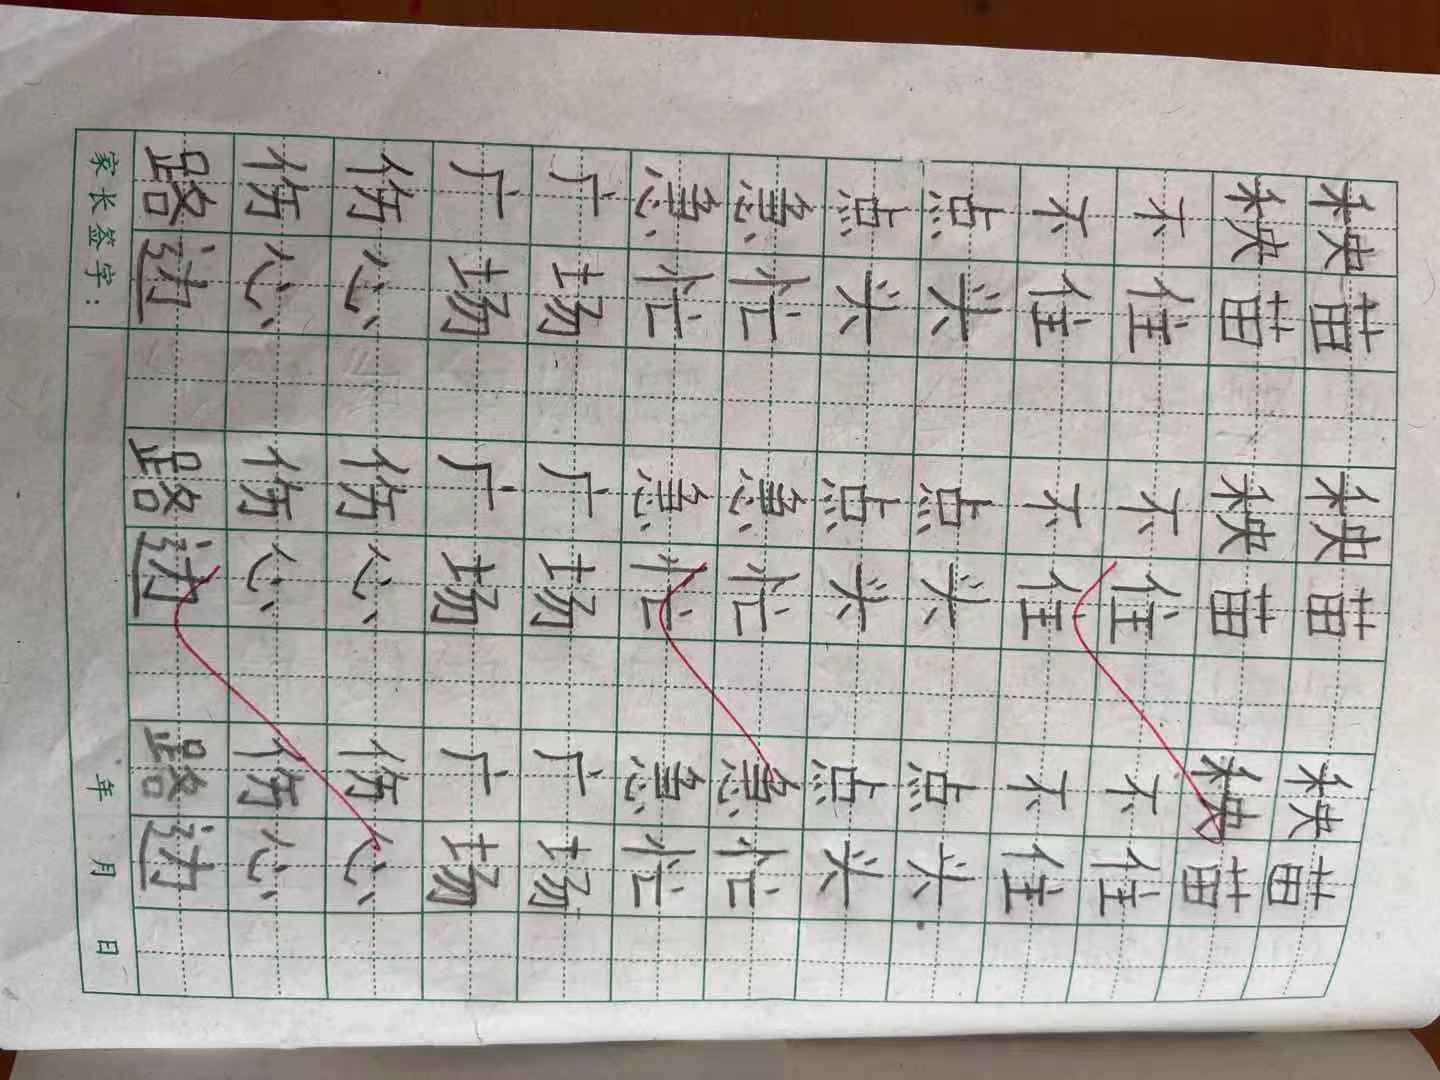 秧苗 秧苗 秧苗
秧苗 秧苗 秧苗
不住 不住 不住
不住 不住 不住
点头 点头 点头
点头 点头 点头
急忙 急忙 急忙
急忙 急忙 急忙
广场 广场 广场
广场 广场 广场
伤心 伤心 伤心
伤心 伤心 伤心
路边 路边 路边
家长签字： 年 月 日